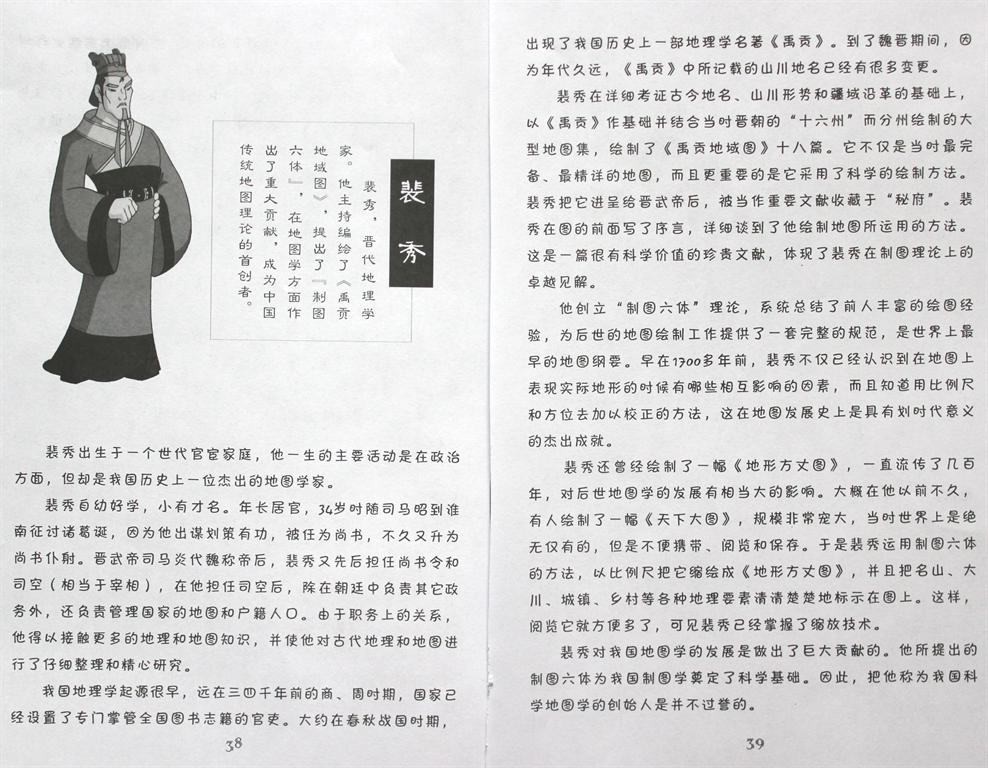 裴秀
裴秀，晋代地理学
家。他主持编绘了《禹贡
地域图》，提出了『制图
六体』，在地图学方面作
出了重大贡献，成为中国
传统地图理论的首创者。
裴秀出生于一个世代官宦家庭，他一生的主要活动是在政治
方面，但却是我国历史上一位杰出的地图学家。
裴秀自幼好学，小有才名。年长居官，34岁时随司马昭到淮
南征讨诸葛诞，因为他出谋划策有功，被任为尚书，不久又升为
尚书仆射。晋武帝司马炎代魏称帝后，裴秀又先后担任尚书令和
司空（相当于宰相），在他担任司空后，除在朝廷中负责其它政
务外，还负责管理国家的地图和户籍人口。由于职务上的关系，
他得以接触更多的地理和地图知识，并使他对古代地理和地图进
行了仔细整理和精心研究。
我国地理学起源很早，远在三四千年前的商、周时期，国家已
经设置了专门掌管全国图书志籍的官吏。大约在春秋战国时期，
38
出现了我国历史上一部地理学名著《禹贡》。到了魏晋期间，因
为年代久远，《禹贡》中所记载的山川地名已经有很多变更。
裴秀在详细考证古今地名、山川形势和疆域沿革的基础上，
以《禹贡》作基础并结合当时晋朝的“十六州”而分州绘制的大
型地图集，绘制了《禹贡地域图》十八篇。它不仅是当时最完
备、最精详的地图，而且更重要的是它采用了科学的绘制方法。
裴秀把它进呈给晋武帝后，被当作重要文献收藏于“秘府”。裴
秀在图的前面写了序言，详细谈到了他绘制地图所运用的方法。
这是一篇很有科学价值的珍贵文献，体现了裴秀在制图理论上的
卓越见解。
他创立“制图六体”理论，系统总结了前人丰富的绘图经
验，为后世的地图绘制工作提供了一套完整的规范，是世界上最
早的地图纲要。早在1700多年前，裴秀不仅已经认识到在地图上
表现实际地形的时候有哪些相互影响的因素，而且知道用比例尺
和方位去加以校正的方法，这在地图发展史上是具有划时代意义
的杰出成就。
裴秀还曾经绘制了一幅《地形方丈图》，一直流传了几百
年，对后世地图学的发展有相当大的影响。大概在他以前不久，
有人绘制了一幅《天下大图》，规模非常宠大，当时世界上是绝
无仅有的，但是不便携带、阅览和保存。于是裴秀运用制图六体
的方法，以比例尺把它缩绘成《地形方丈图》，并且把名山、大
川、城镇、乡村等各种地理要素清清楚楚地标示在图上。这样，
阅览它就方便多了，可见裴秀已经掌握了缩放技术。
裴秀对我国地图学的发展是做出了巨大贡献的。他所提出的
制图六体为我国制图学奠定了科学基础。因此，把他称为我国科
学地图学的创始人是并不过誉的。
39